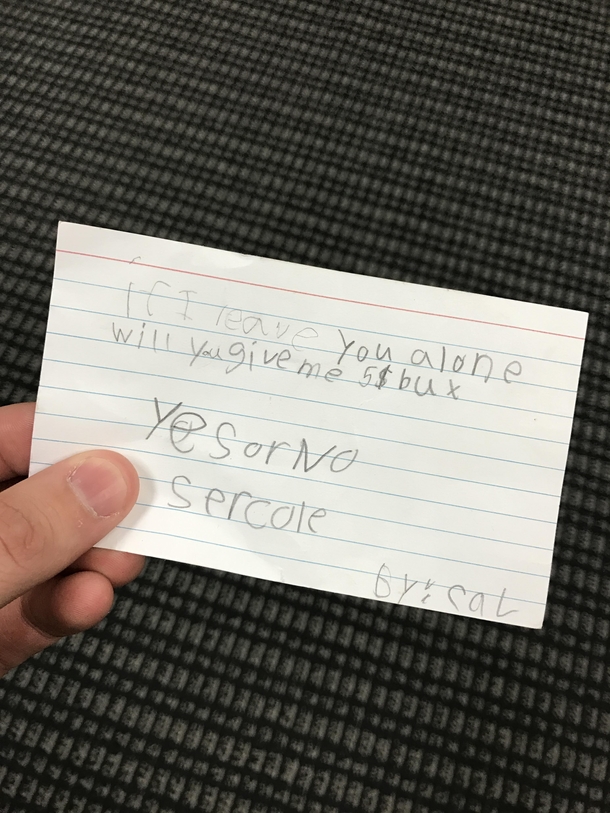 If I leave you alone
will you give me 5$ bux
Yes or No
Sercole
By: Cal